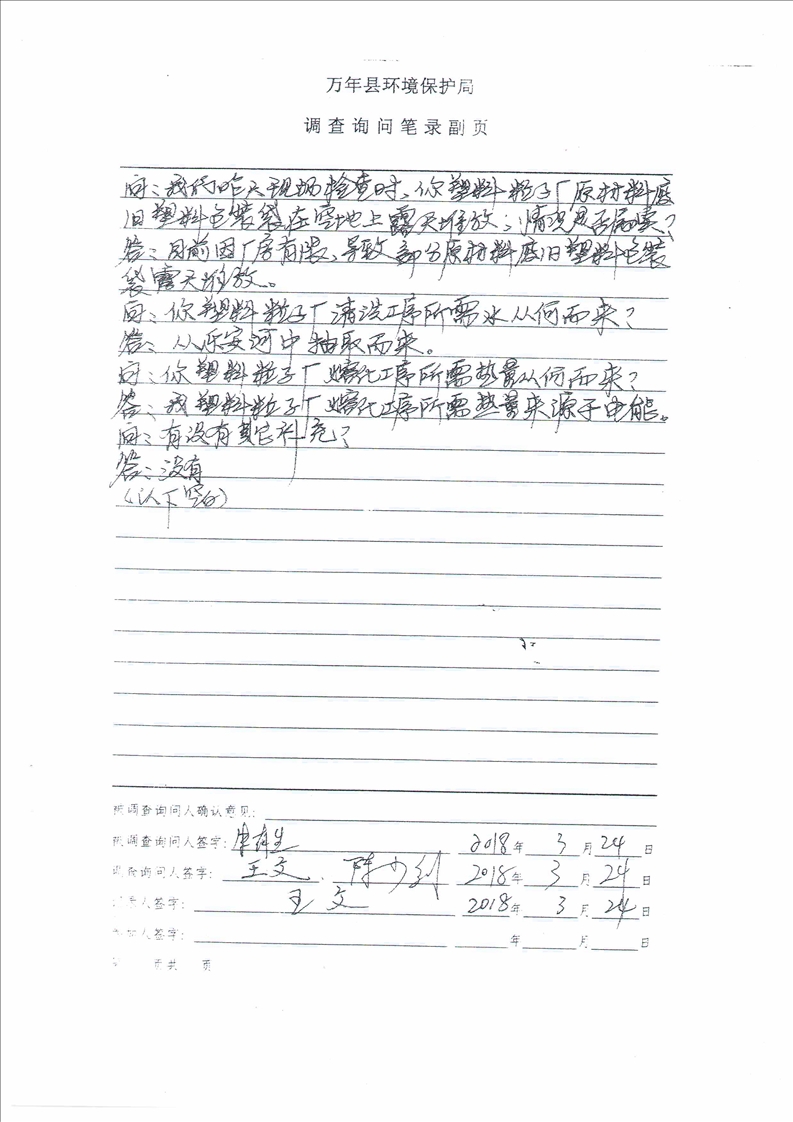 万年县环境保护局
调查询问笔录副页
问：我们昨天现场检查时，你塑料粒子厂原材料废
旧塑料包装袋在空地上露天堆放，情况是否属实？
答：目前因厂房有限，导致部分原材料废旧塑料包装
袋露天存放。
问：你塑料粒子厂清洗工序所需水从何而来？
答：从乐安河中抽取而来。
问：你塑料粒子厂熔化工序所需热量从何而来？
答：我塑料粒子厂熔化工序所需热量来源于电能。
问：有没有其它补充？
答：没有
（以下空白）
被调查询问人确认意见：
被调查询问人签字： 2018年 3月 24日
调查询问人签字：王文、陈少剑 2018年 3月 24日
记录人签字：王文 2018年 3月 24日
人签字： 年 月 日
页共 页